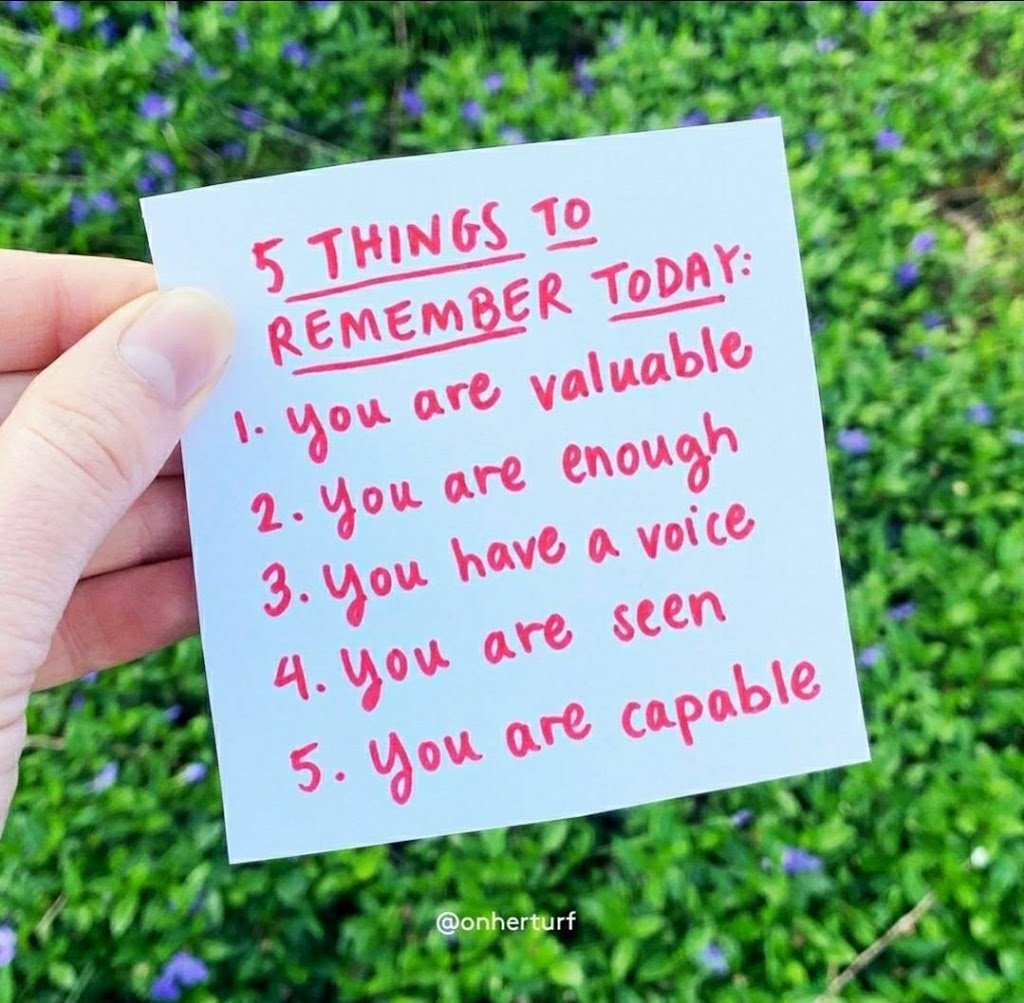 5 THINGS TO
REMEMBER TODAY:
1. You are valuable
2. You are enough
3. You have a voice
4. You are seen
5. You are capable
@onherturf